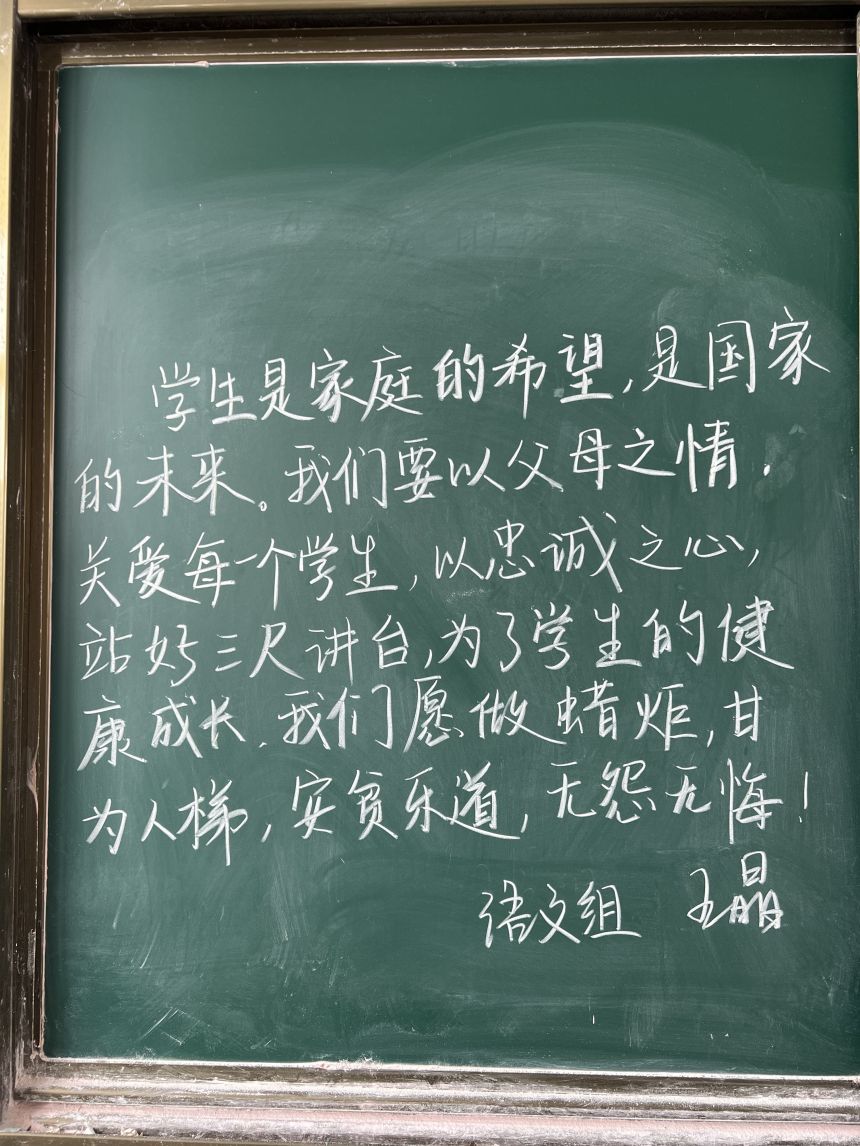 学生是家庭的希望,是国家
的未来。我们要以父母之情,
关爱每一个学生,以忠诚之心,
站好三尺讲台,为了学生的健
康成长,我们愿做蜡炬,甘
为人梯,安贫乐道,无怨无悔!
语文组 王晶